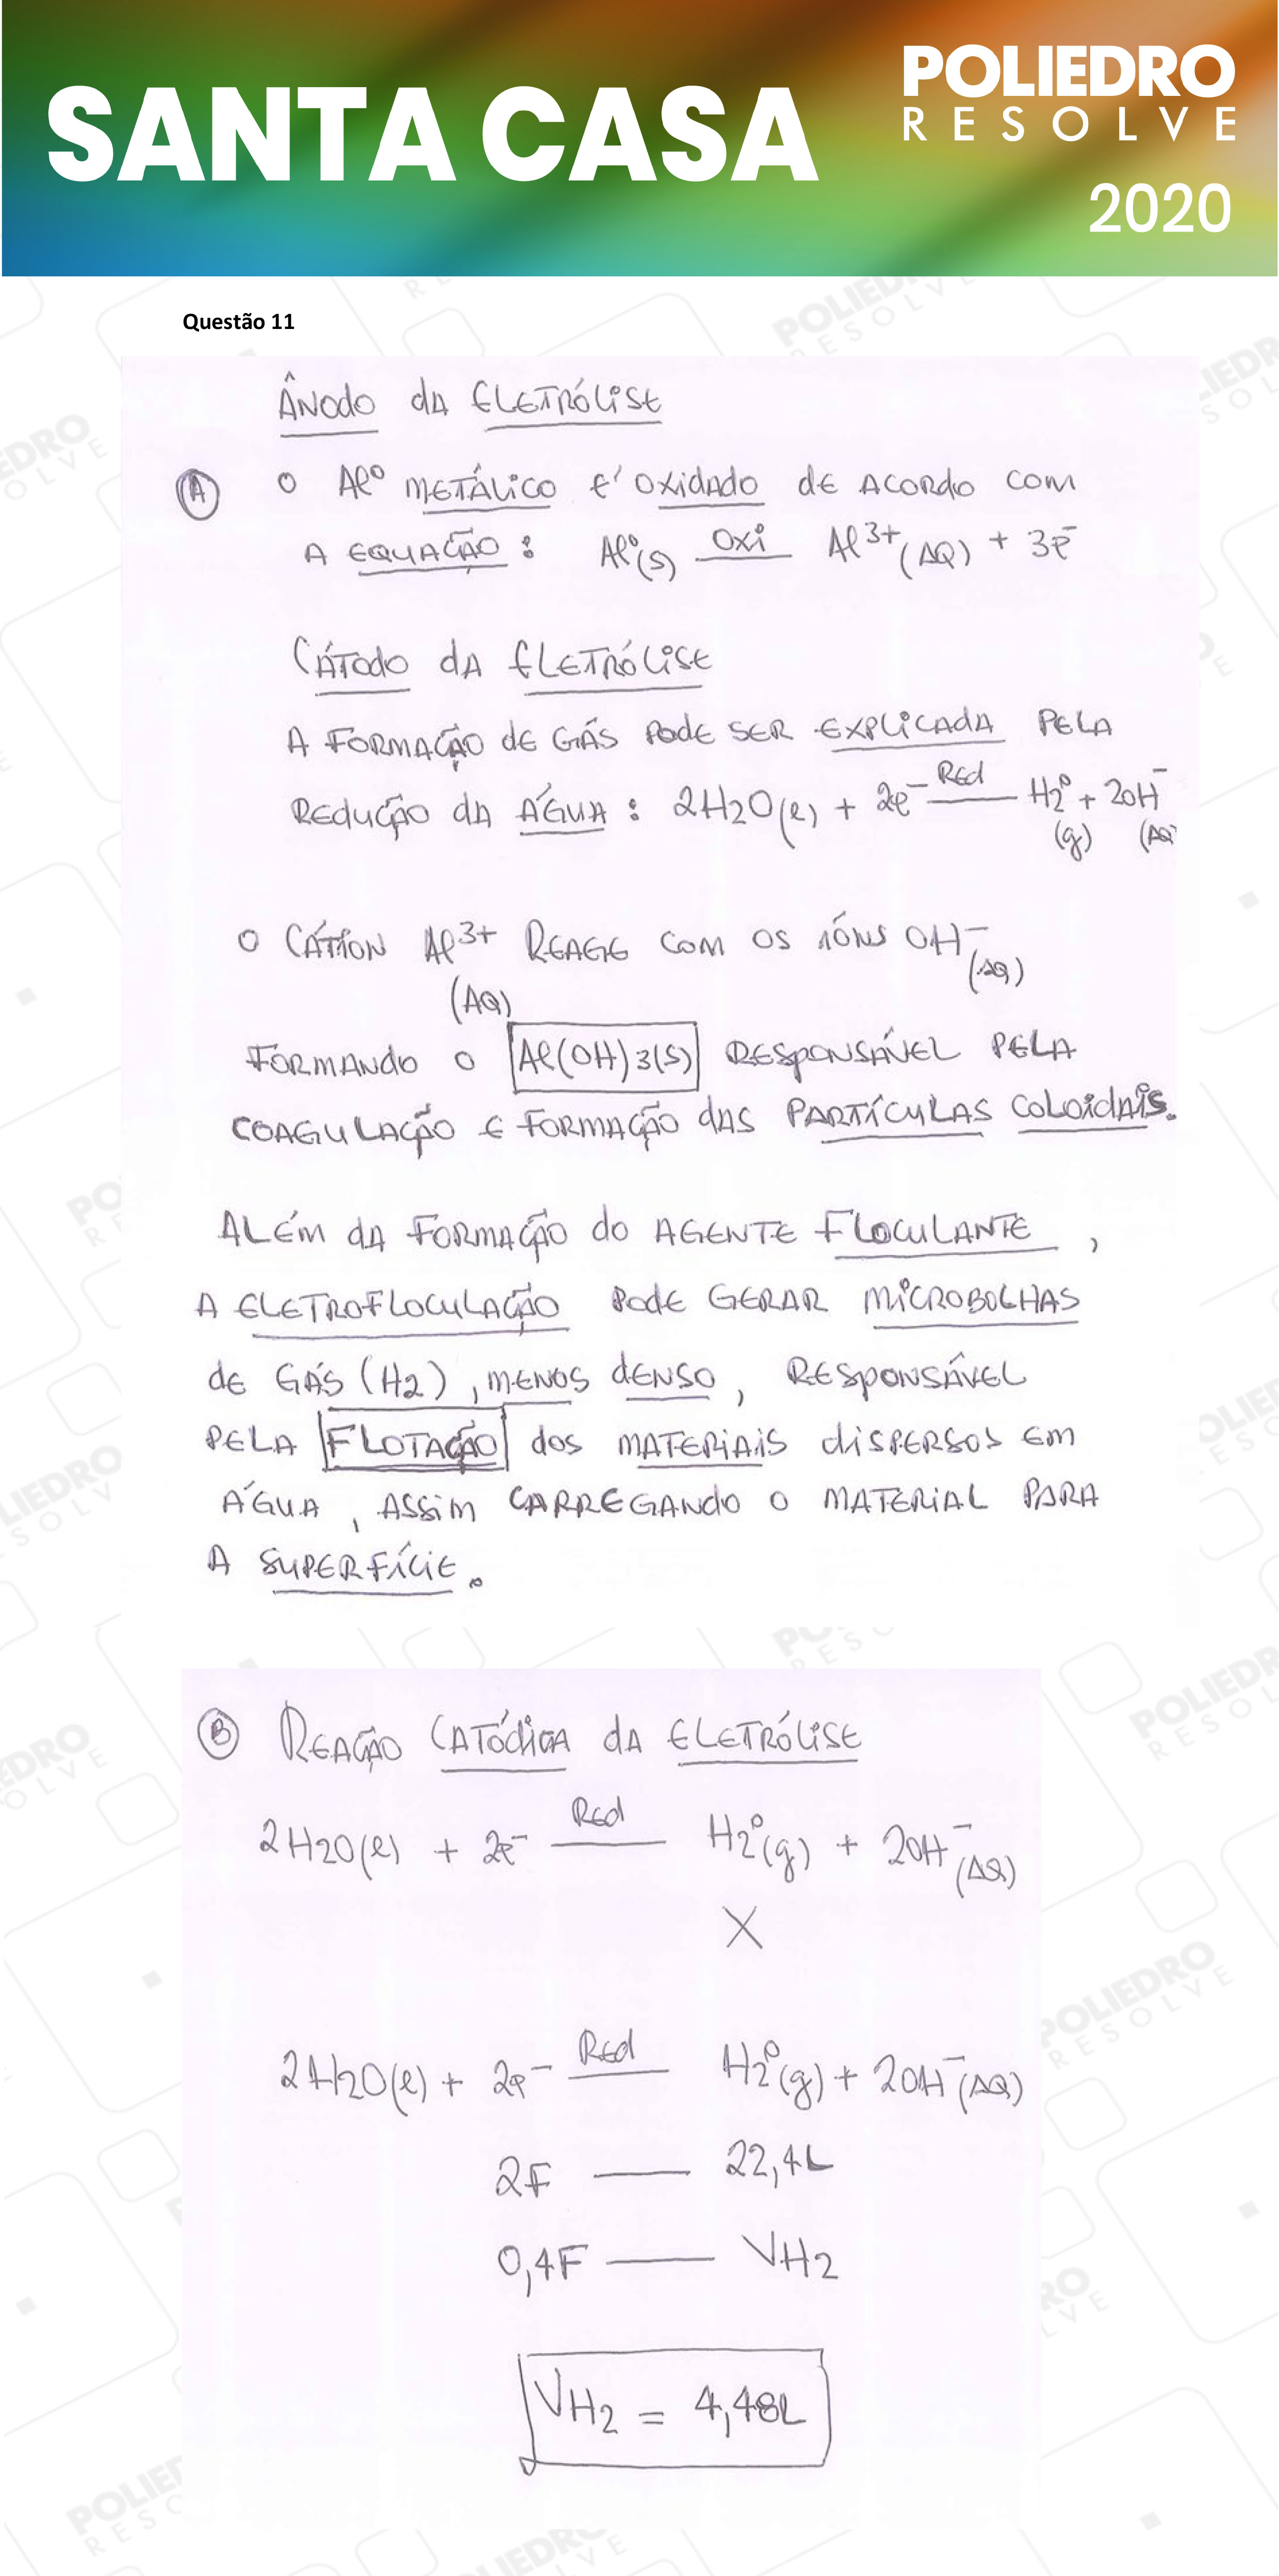 SANTA CASA
POLIEDRO
RESOLVE
2020
Questão 11
ÂNODO DA ELETRÓLISE
A O Alº METÁLICO É OXIDADO DE ACORDO COM
A EQUAÇÃO: Alº(S) OXI Al3+(AQ) + 3e-
CÁTODO DA ELETRÓLISE
A FORMAÇÃO DE GÁS PODE SER EXPLICADA PELA
REDUÇÃO DA ÁGUA: 2H2O(l) + 2e- Red H2º(g) + 2OH-(AQ
O CÁTION Al3+(AQ) REAGE COM OS ÍONS OH-(AQ)
FORMANDO O Al(OH)3(S) RESPONSÁVEL PELA
COAGULAÇÃO E FORMAÇÃO DAS PARTÍCULAS COLOIDAIS.
ALÉM DA FORMAÇÃO DO AGENTE FLOCULANTE,
A ELETROFLOCULAÇÃO PODE GERAR MICROBOLHAS
DE GÁS (H2), MENOS DENSO, RESPONSÁVEL
PELA FLOTAÇÃO DOS MATERIAIS DISPERSOS EM
ÁGUA, ASSIM CARREGANDO O MATERIAL PARA
A SUPERFÍCIE.
B REAÇÃO CATÓDICA DA ELETRÓLISE
2H2O(l) + 2e- Red H2º(g) + 2OH-(AQ)
X
2H2O(l) + 2e- Red H2º(g) + 2OH-(AQ)
2F — 22,4L
0,4F — VH2
VH2 = 4,48L